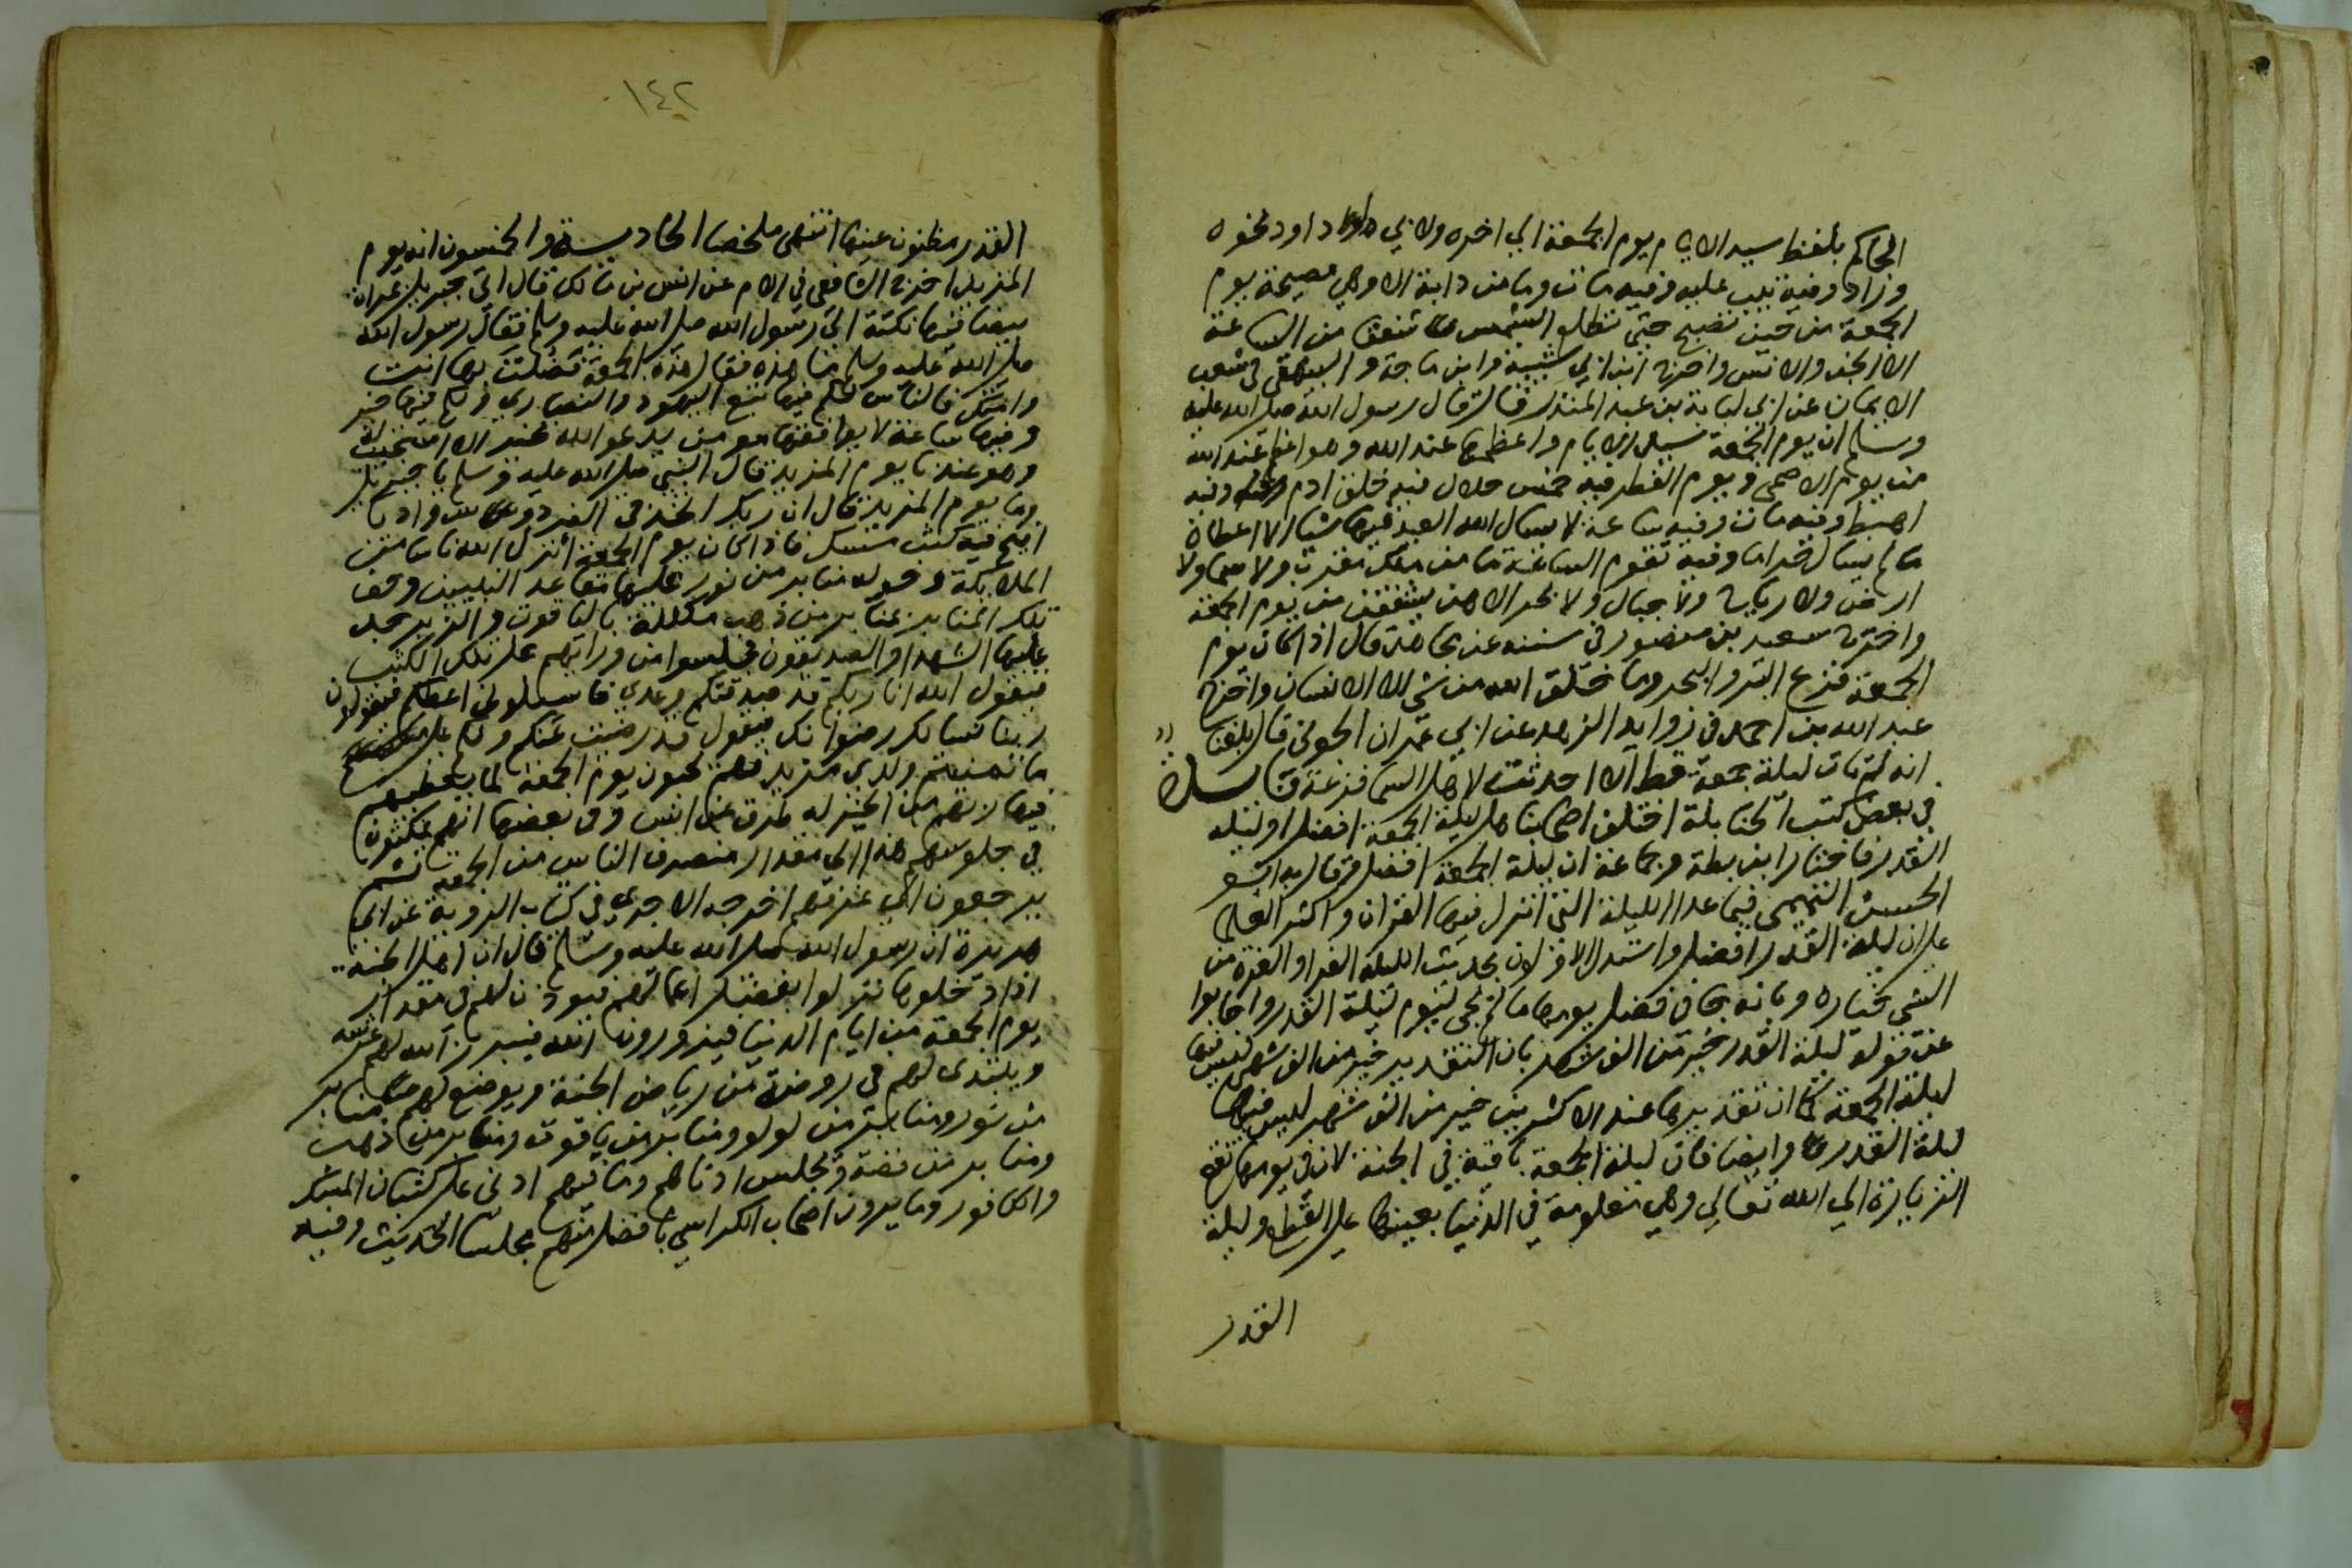 الحاكم بلفظ سيد الايام يوم الجمعة الي اخره ولابي داود نحوه
وزاد وفيه تيب عليه وفيه مات وما من دابة الا وهي مصيخة يوم
الجمعة من حين تصبح حتى تطلع الشمس شفقا من الساعة
الا الجن والانس واخرج ابن ابي شيبة وابن ماجة والبيهقي في شعب
الايمان عن ابي لبابة بن عبد المنذر قال قال رسول الله صلى الله عليه
وسلم ان يوم الجمعة سيد الايام واعظمها عند الله وهو اعظم عند الله
من يوم الاضحى ويوم الفطر فيه خمس خلال فيه خلق ادم وفيه
اهبط وفيه مات وفيه ساعة لا يسال الله العبد فيها شيا الا اعطاه
ما لم يسال حراما وفيه تقوم الساعة ما من ملك مقرب ولا سما ولا
ارض ولا رياح ولا جبال ولا بحر الا هن يشفقن من يوم الجمعة
واخرج سعيد بن منصور في سننه عن مجاهد قال اذا كان يوم
الجمعة فزع البر والبحر وما خلق الله من شي الا الانسان واخرج
عبد الله بن احمد في زوايد الزهد عن ابي عمران الجوني قال بلغنا
انه لم تات ليلة جمعة قط الا احدثت لاهل السما فزعة
في بعض كتب الحنابلة اختلف اصحابنا هل ليلة الجمعة افضل او ليلة
القدر فاختار ابن بطة وجماعة ان ليلة الجمعة افضل وقال به ابو
الحسن التميمي فيما عدا الليلة التي انزل فيها القران واكثر العلما
على ان ليلة القدر افضل واستدل الاولون بحديث الليلة الغرا والغرة من
الشي خياره وبانه جا في فضل يومها ما لم يجي ليوم ليلة القدر واجابوا
عن قوله ليلة القدر خير من الف شهر بان التقدير خير من الف شهر ليس فيها
ليلة الجمعة كما ان تقديرها عند الاكثرين خير من الف شهر ليس فيها
ليلة القدر وايضا فان ليلة الجمعة باقية في الجنة لان في يومها تقع
الزيارة الي الله تعالي وهي معلومة في الدنيا بعينها على القطع وليلة
القدر
١٤٢
القدر مظنون عينها انتهى ملخصا الحادية والخمسون انه يوم
المزيد اخرج الشافعي في الام عن انس بن مالك قال اتى جبريل بمراة
بيضا فيها نكتة الي رسول الله صلى الله عليه وسلم فقال رسول الله
صلى الله عليه وسلم ما هذه فقال هذه الجمعة فضلت بها انت
وامتك فالناس لكم فيها تبع اليهود والنصاري ولكم فيها خير
وفيها ساعة لا يوافقها مومن يدعو الله بخير الا استجيب له
وهو عندنا يوم المزيد قال النبي صلى الله عليه وسلم يا جبريل
وما يوم المزيد قال ان ربك اتخذ في الفردوس واديا
افيح فيه كثب مسك فاذا كان يوم الجمعة أنزل الله ناسا من
الملايكة وحوله منابر من نور عليها مقاعد النبيين وحف
تلك المنابر بمنابر من ذهب مكللة بالياقوت والزبرجد
عليها الشهدا والصديقون فجلسوا من ورائهم على تلك الكثب
فيقول الله انا ربكم قد صدقتكم وعدي فاسلوني اعطكم فيقولون
ربنا نسالك رضوانك فيقول قد رضيت عنكم ولكم علي
ما تمنيتم ولدي مزيد فهم يحبون يوم الجمعة لما يعطيهم
فيها ربهم من الخير له طرق عن انس وفي بعضها انهم يمكثون
في جلوسهم هذا الى مقدار منصرف الناس من الجمعة ثم
يرجعون الي غرفهم اخرجه الاجري في كتاب الروية عن ابي
هريرة ان رسول الله صلى الله عليه وسلم قال ان اهل الجنة
اذا دخلوها نزلوا بفضل اعمالهم فيوذن لهم في مقدار
يوم الجمعة من ايام الدنيا فيزورون الله فيبرز الله لهم عرشه
ويتبدى لهم في روضة من رياض الجنة ويوضع لهم منابر
من نور ومنابر من لولو ومنابر من ياقوت ومنابر من ذهب
ومنابر من فضة ويجلس ادناهم وما فيهم ادنى على كثبان المسك
والكافور وما يرون اصحاب الكراسي بافضل منهم مجلسا الحديث وفيه